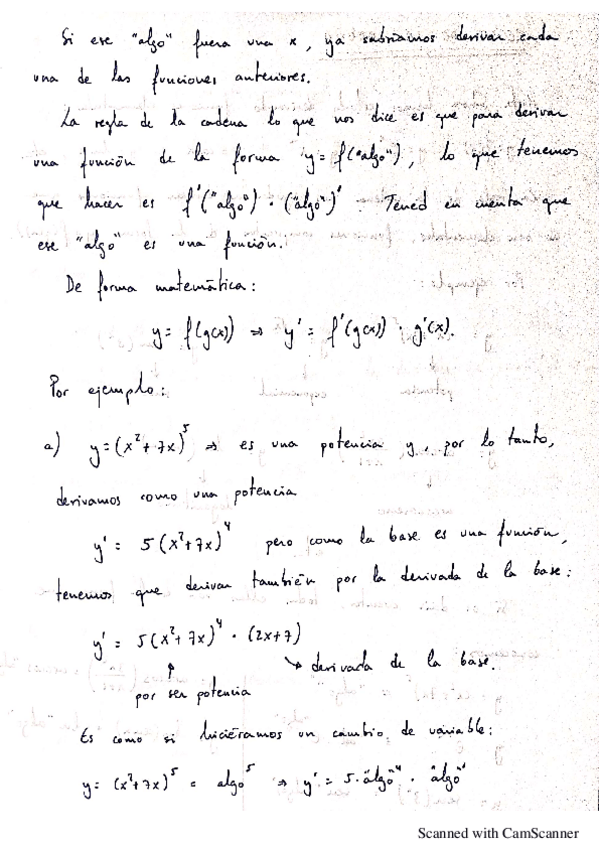 Si ese "algo" fuera una x, ya sabríamos derivar cada
una de las funciones anteriores.
La regla de la cadena lo que nos dice es que para derivar
una función de la forma y = f("algo"), lo que tenemos
que hacer es f'("algo") · ("algo")'. Tened en cuenta que
ese "algo" es una función.
De forma matemática:
y = f(g(x)) ⇒ y' = f'(g(x)) · g'(x).
Por ejemplo:
a) y = (x² + 7x)⁵ ⇒ es una potencia y, por lo tanto,
derivamos como una potencia
y' = 5(x²+7x)⁴ pero como la base es una función,
tenemos que derivar también por la derivada de la base:
y' = 5(x²+7x)⁴ · (2x+7)
↘ derivada de la base.
por ser potencia
Es como si hiciéramos un cambio de variable:
y = (x²+7x)⁵ = algo⁵ ⇒ y' = 5·"algo"⁴ · "algo"'
Scanned with CamScanner